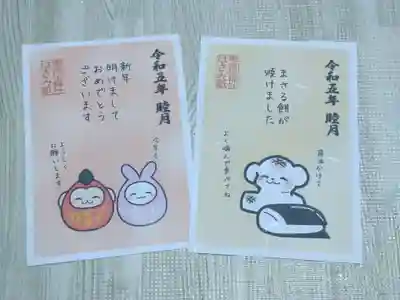 令和五年 睦月
新年
明けまして
おめでとう
ございます
よろしく
お願いします
令和五年 睦月
まさる餅が
焼けました
よく噛んで食べてね